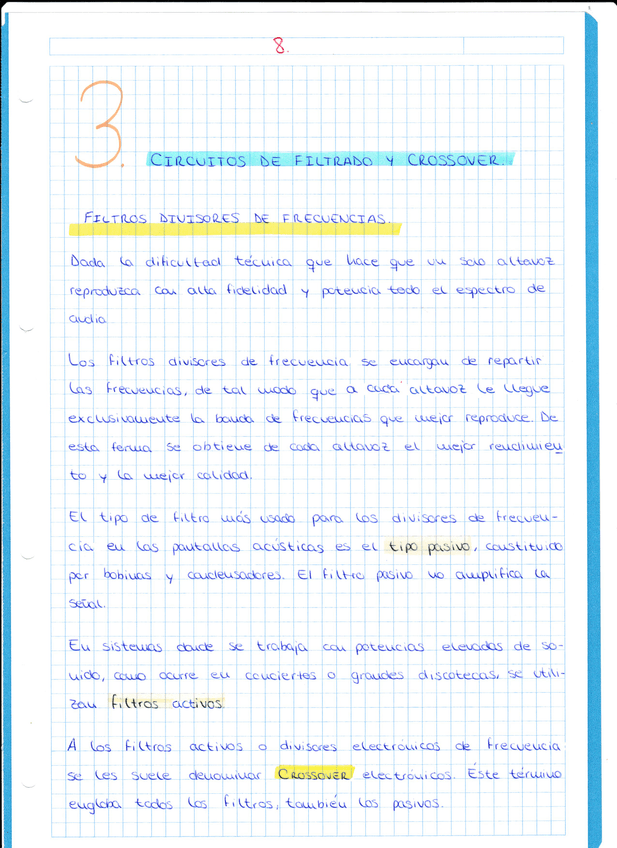 8.
3.
CIRCUITOS DE FILTRADO Y CROSSOVER.
FILTROS DIVISORES DE FRECUENCIAS.
Dada la dificultad técnica que hace que un solo altavoz
reproduzca con alta fidelidad y potencia todo el espectro de
audio
Los filtros divisores de frecuencia se encargan de repartir
las frecuencias, de tal modo que a cada altavoz le llegue
exclusivamente la banda de frecuencias que mejor reproduce. De
esta forma se obtiene de cada altavoz el mejor rendimien
to y la mejor calidad.
El tipo de filtro más usado para los divisores de frecuen-
cia en las pantallas acústicas es el tipo pasivo, constituido
por bobinas y condensadores. El filtro pasivo no amplifica la
señal.
En sistemas donde se trabaja con potencias elevadas de so-
nido, como ocurre en conciertos o grandes discotecas, se utili-
zan filtros activos
A los filtros activos o divisores electrónicos de frecuencia
se les suele denominar CROSSOVER electrónicos. Éste término
engloba todos los filtros, también los pasivos.